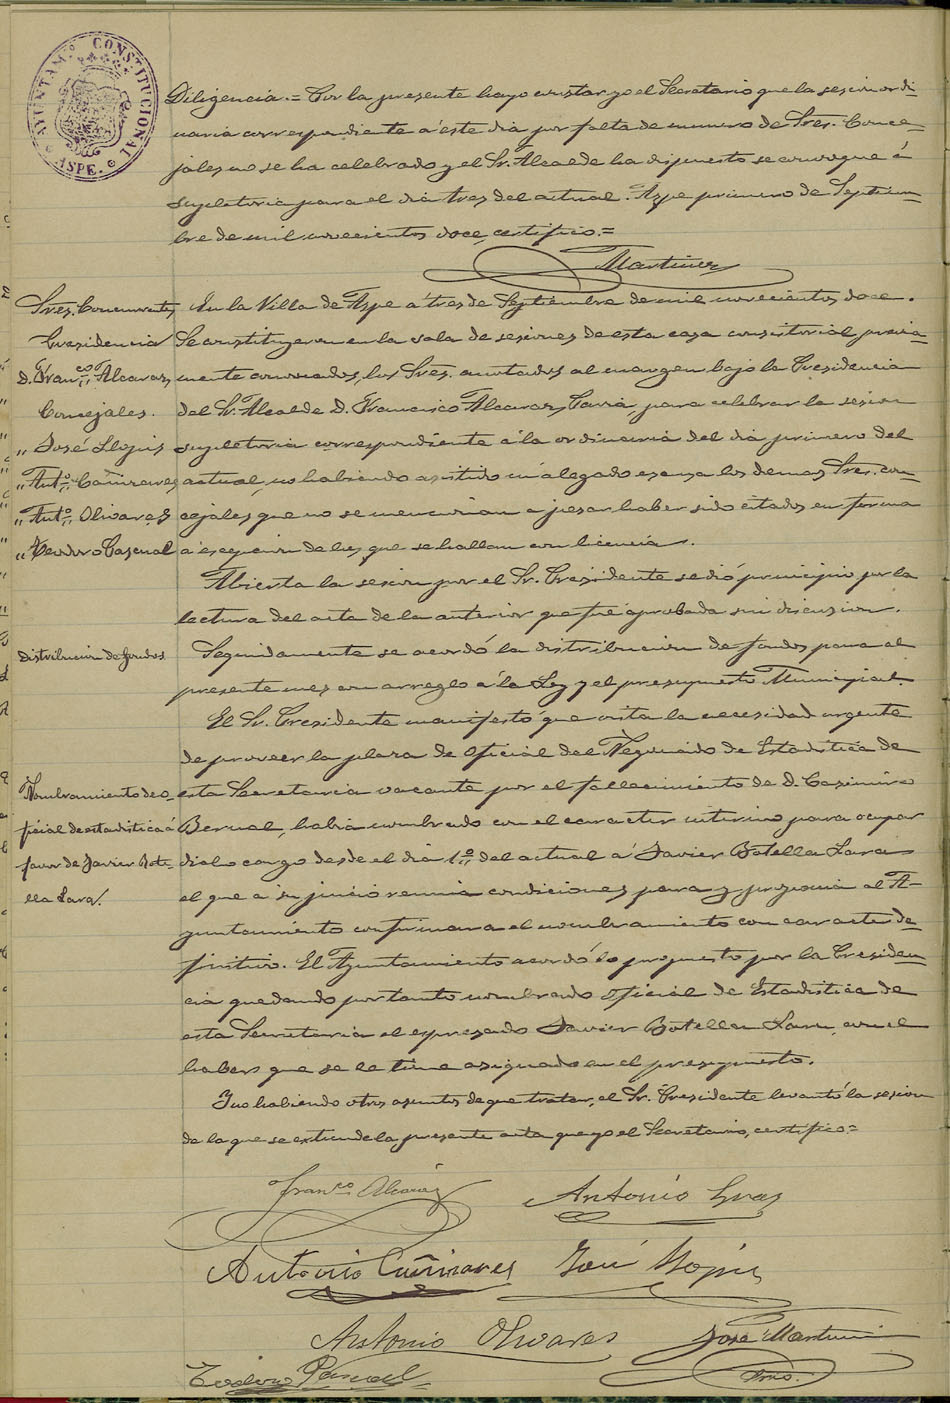 AYUNTAM.º CONSTITUCIONAL
ASPE.
Diligencia.= Por la presente hago constar yo el Secretario que la sesion ordi=
naria correspondiente a este dia por falta de numero de Sres. Conce=
jales no se ha celebrado y el Sr. Alcalde ha dispuesto se convoque á
supletoria para el dia tres del actual. Aspe primero de Septiem=
bre de mil novecientos doce, certifico.=
Martinez
Sres. Concurrentes
Presidencia
D. Fran.co Alcaraz
Concejales.
„ José Llopis
„ Ant.o Cañizares
„ Ant.o Olivares
„ Teodoro Pascual
En la Villa de Aspe a tres de Septiembre de mil novecientos doce.
Se constituyeron en la sala de sesiones de esta casa consistorial previa=
mente convocados, los Sres. anotados al margen bajo la Presidencia
del Sr. Alcalde D. Francisco Alcaraz Pavia, para celebrar la sesion
supletoria correspondiente á la ordinaria del dia primero del
actual, no habiendo asistido ni alegado escusa los demas Sres. con=
cejales que no se mencionan a pesar haber sido citados en forma
a escepcion de los que se hallan con licencia.
Abierta la sesion por el Sr. Presidente se dió principio por la
lectura del acta de la anterior que fué aprobada sin discusion.
Distribucion de fondos
Seguidamente se acordó la distribucion de fondos para el
presente mes con arreglo á la Ley y el presupuesto Municipal.
Nombramiento de o=
ficial de estadistica á
favor de Javier Bote=
lla Lara.
El Sr. Presidente manifestó que vista la necesidad urgente
de proveer la plaza de oficial del Negociado de Estadistica de
esta Secretaria vacante por el fallecimiento de D. Casimiro
Bernal, habia nombrado con el caracter interino para ocupar
dicho cargo desde el dia 1.o del actual a Javier Botella Lara
el que a su juicio reunia condiciones para y proponia al A=
yuntamiento confirmara el nombramiento con caracter de=
finitivo. El Ayuntamiento acordó lo propuesto por la Presiden=
cia quedando por tanto nombrado oficial de Estadistica de
esta Secretaria el espresado Javier Botella Lara, con el
haber que se le tiene asignado en el presupuesto.
Y no habiendo otros asuntos de que tratar, el Sr. Presidente levantó la sesion
de la que se extiende la presente acta que yo el Secretario, certifico=
Fran.co Alcaráz
Antonio
Antonio Cañizares
José Llopis
Antonio Olivares
José Martinez
Teodoro Pascual
Srio.